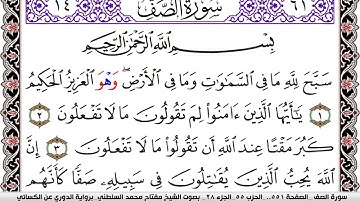 ١٤ سُورَةُ الصَّفِّ ٦١
بِسْمِ اللَّهِ الرَّحْمَٰنِ الرَّحِيمِ
سَبَّحَ لِلَّهِ مَا فِي السَّمَٰوَٰتِ وَمَا فِي الْأَرْضِ ۖ وَهْوَ الْعَزِيزُ الْحَكِيمُ
١ يَٰأَيُّهَا الَّذِينَ ءَامَنُوا لِمَ تَقُولُونَ مَا لَا تَفْعَلُونَ ٢
كَبُرَ مَقْتًا عِندَ اللَّهِ أَن تَقُولُوا مَا لَا تَفْعَلُونَ ٣ إِنَّ
اللَّهَ يُحِبُّ الَّذِينَ يُقَٰتِلُونَ فِي سَبِيلِهِ صَفًّا كَأَنَّهُم
سورة الصف الصفحة ٥٥١.. الحزب ٥٥ ..الجزء ٢٨ بصوت الشيخ مفتاح محمد السلطني برواية الدوري عن الكسائي